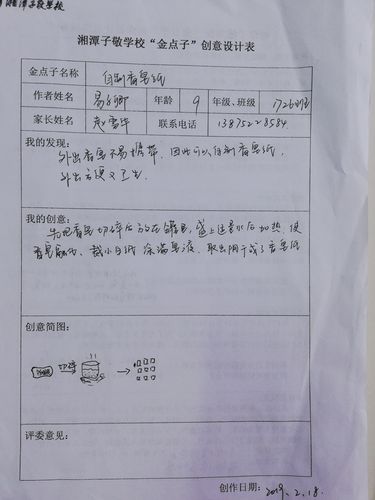 湘潭子敬学校
湘潭子敬学校“金点子”创意设计表
金点子名称 自制香皂纸
作者姓名 易 卿 年龄 9 年级、班级 1726班
家长姓名 赵雪华 联系电话 13875228584
我的发现：
外出香皂不易携带，因此可以自制香皂纸，
外出方便又卫生.
我的创意：
先把香皂切碎后放在罐里，盛上适量水后加热，使
香皂融化、裁小白纸涂满皂液、取出阴干成了香皂纸
创意简图：
切碎
评委意见：
创作日期：2019.2.18.